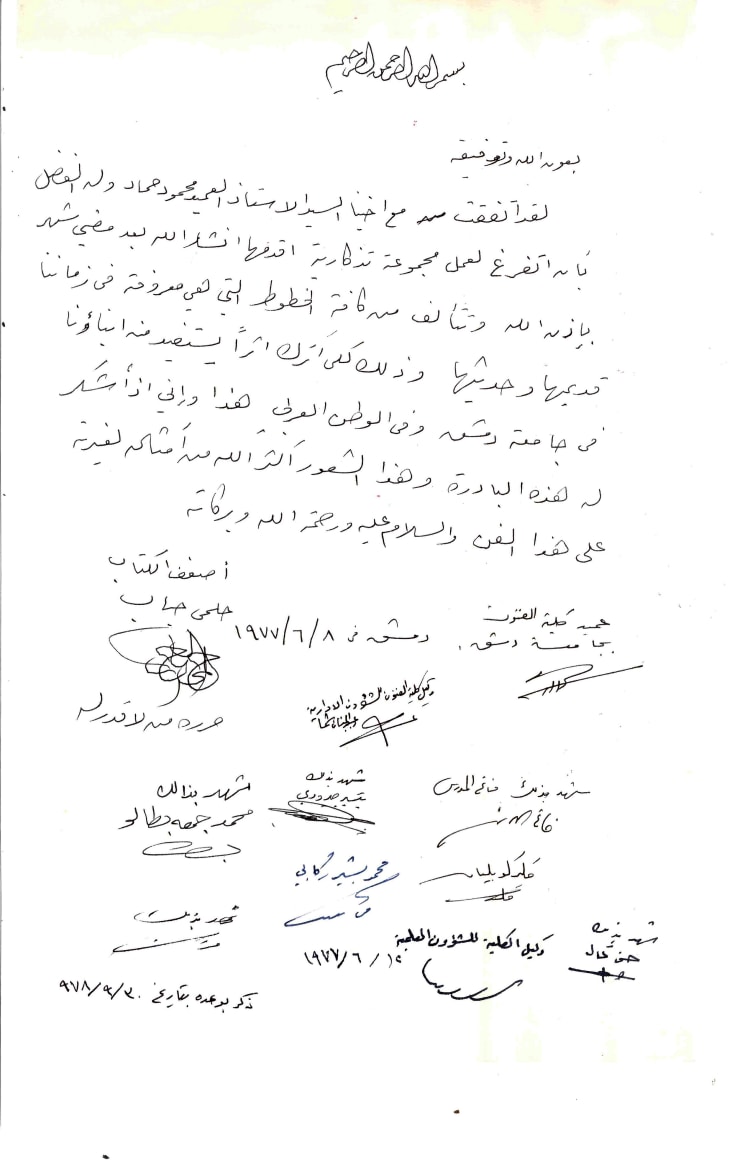 بسم الله الرحمن الرحيم
بعون الله وتوفيقه
لقد اتفقت مع اخينا السيد الاستاذ العميد محمود حماد وله الفضل
بان اتفرغ لعمل مجموعة تذكارية اقدمها انشاء الله بعد مضي شهر
بإذن الله وتتألف من كافة الخطوط التي هي معروفة في زماننا
قديمها وحديثها وذلك لكي أترك اثراً يستفيد منه ابناؤنا
في جامعة دمشق وفي الوطن العربي هذا واني اذ أشكر
له هذه البادرة وهذا الشعور أكثر الله من أمثاله لغيرته
على هذا الفن والسلام عليه ورحمة الله وبركاته
أضعف الكتاب
حلمي حباب
عميد كلية الفنون
بجامعة دمشق
دمشق في ٨/٦/١٩٧٧
وكيل كلية الفنون للشؤون الادارية
حرره من لا قدر له
شهد بذلك فائز المدرس
شهد بذلك
شهد بذالك
محمد جمعه بطال
محمد بشير ركابي
شهد بذلك
شهد بذلك
وكيل الكلية للشؤون العلمية
١٩٧٧/٦/١٥
ذكر بوعده بتاريخ ٩٧٨/٩/٣٠